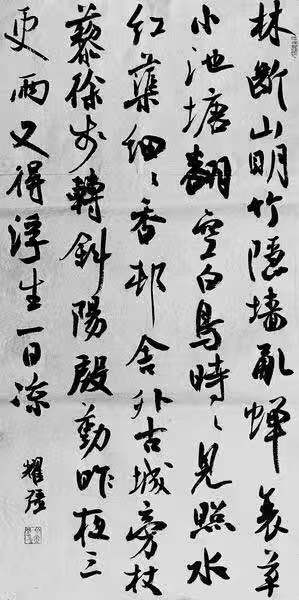 林断山明竹隱墻亂蟬衰草
小池塘翻空白鳥時〻見照水
紅蕖細〻香邨舍外古城旁杖
藜徐步轉斜陽殷勤昨夜三
更雨又得浮生一日凉
耀